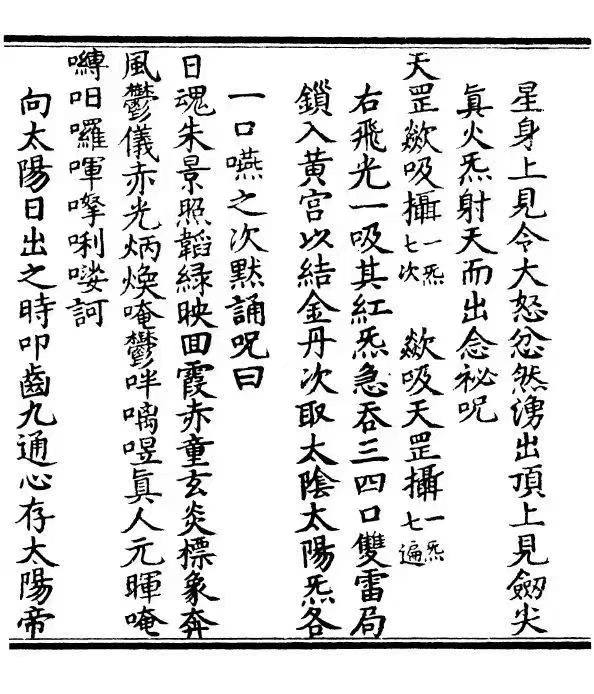 星身上見令大怒忿然湧出頂上見劒尖
眞火炁射天而出念祕呪
天罡歘吸攝一炁七次 歘吸天罡攝一炁七遍
右飛光一吸其紅炁急吞三四口雙雷局
鎖入黃宮以結金丹次取太陰太陽炁各
一口嚥之次默誦呪曰
日魂朱景照韜綠映回霞赤童玄炎標象奔
風鬱儀赤光炳煥唵鬱眞人元暉唵
嚩囉喗唎訶
向太陽日出之時叩齒九通心存太陽帝